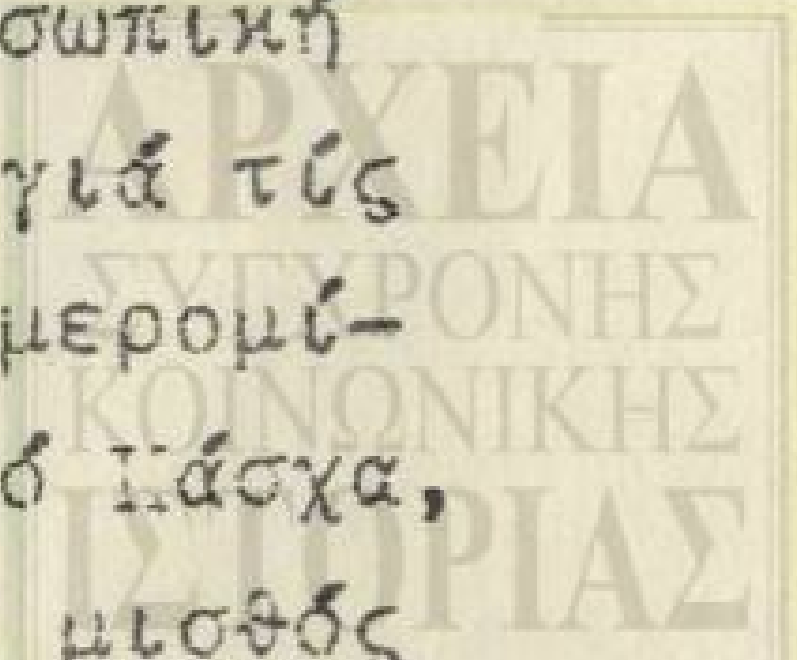 σωπική
γιά τίς
μερομί-
ό Πάσχα,
μισθός
ΑΡΧΕΙΑ
ΣΥΓΧΡΟΝΗΣ
ΚΟΙΝΩΝΙΚΗΣ
ΙΣΤΟΡΙΑΣ